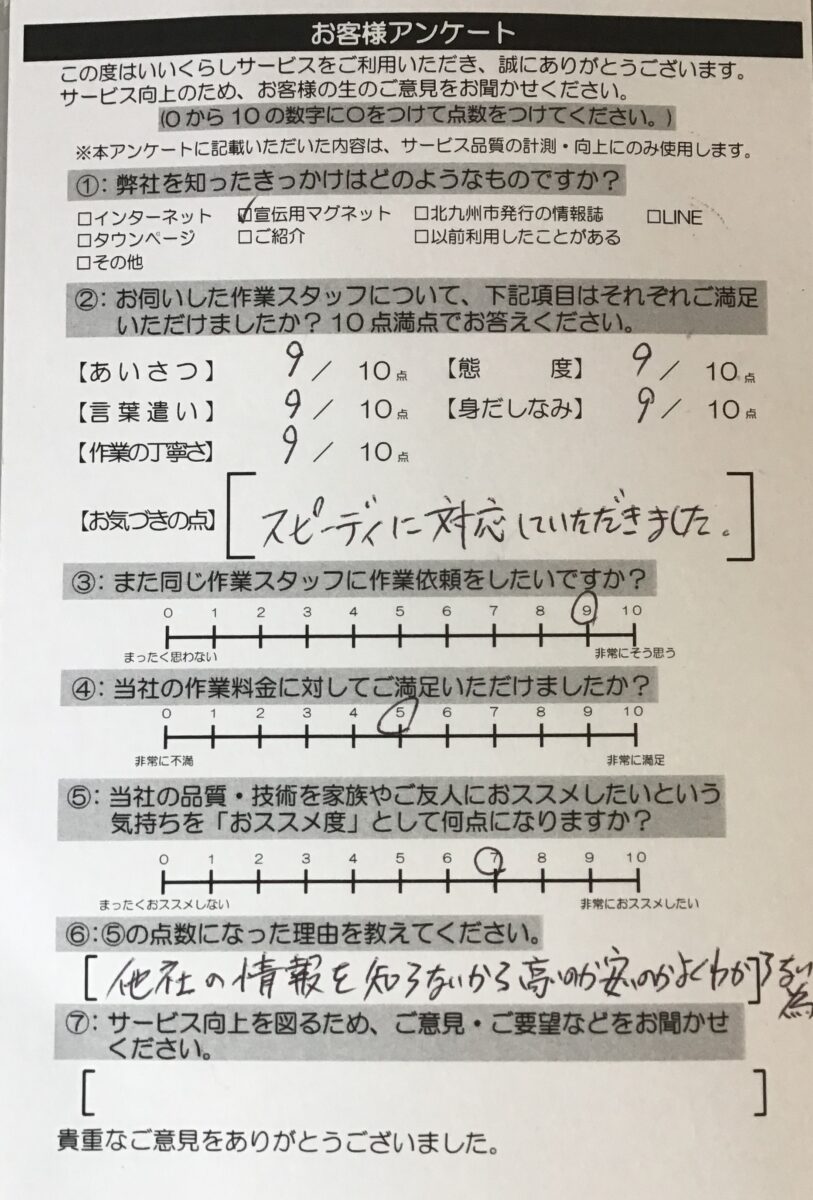 お客様アンケート
この度はいいくらしサービスをご利用いただき、誠にありがとうございます。
サービス向上のため、お客様の生のご意見をお聞かせください。
(0から10の数字に○をつけて点数をつけてください。)
※本アンケートに記載いただいた内容は、サービス品質の計測・向上にのみ使用します。
①:弊社を知ったきっかけはどのようなものですか?
□インターネット ☑宣伝用マグネット □北九州市発行の情報誌 □LINE
□タウンページ □ご紹介 □以前利用したことがある
□その他
②:お伺いした作業スタッフについて、下記項目はそれぞれご満足
いただけましたか?10点満点でお答えください。
【あいさつ】 9/10点 【態度】 9/10点
【言葉遣い】 9/10点 【身だしなみ】 9/10点
【作業の丁寧さ】 9/10点
【お気づきの点】[スピーディに対応していただきました。]
③:また同じ作業スタッフに作業依頼をしたいですか?
0 1 2 3 4 5 6 7 8 9 10
まったく思わない 非常にそう思う
④:当社の作業料金に対してご満足いただけましたか?
0 1 2 3 4 5 6 7 8 9 10
非常に不満 非常に満足
⑤:当社の品質・技術を家族やご友人におススメしたいという
気持ちを「おススメ度」として何点になりますか?
0 1 2 3 4 5 6 7 8 9 10
まったくおススメしない 非常におススメしたい
⑥:⑤の点数になった理由を教えてください。
[他社の情報を知らないから高いのか安いのかよくわか]らない
点
⑦:サービス向上を図るため、ご意見・ご要望などをお聞かせ
ください。
[ ]
貴重なご意見をありがとうございました。